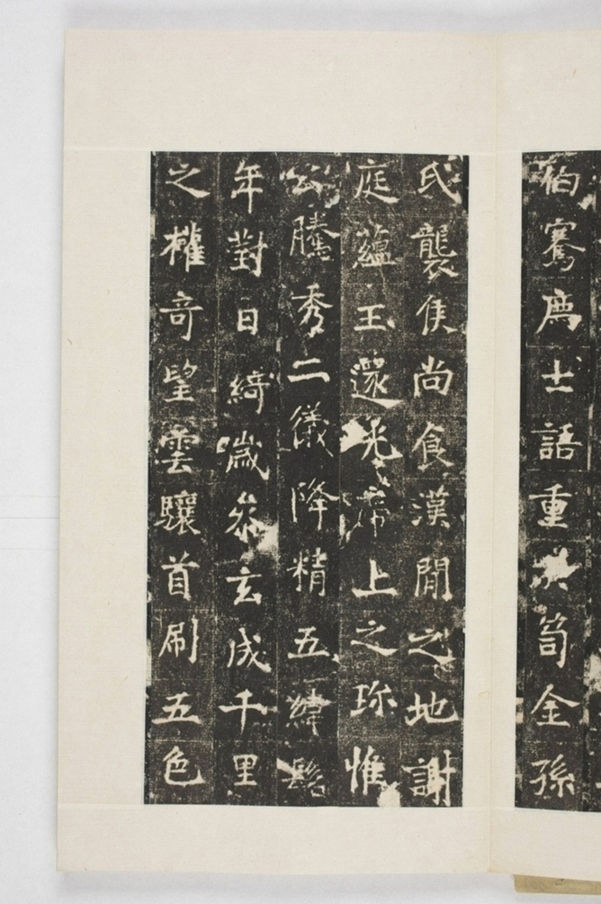 伯騫士語重筍金孫
氏襲侯尚食漢閒之地謝
庭蘊玉還光席上之珎惟
公騰秀二儀降精五緯髫
年對日綺歲參玄成千里
之權竒望雲驤首刷五色